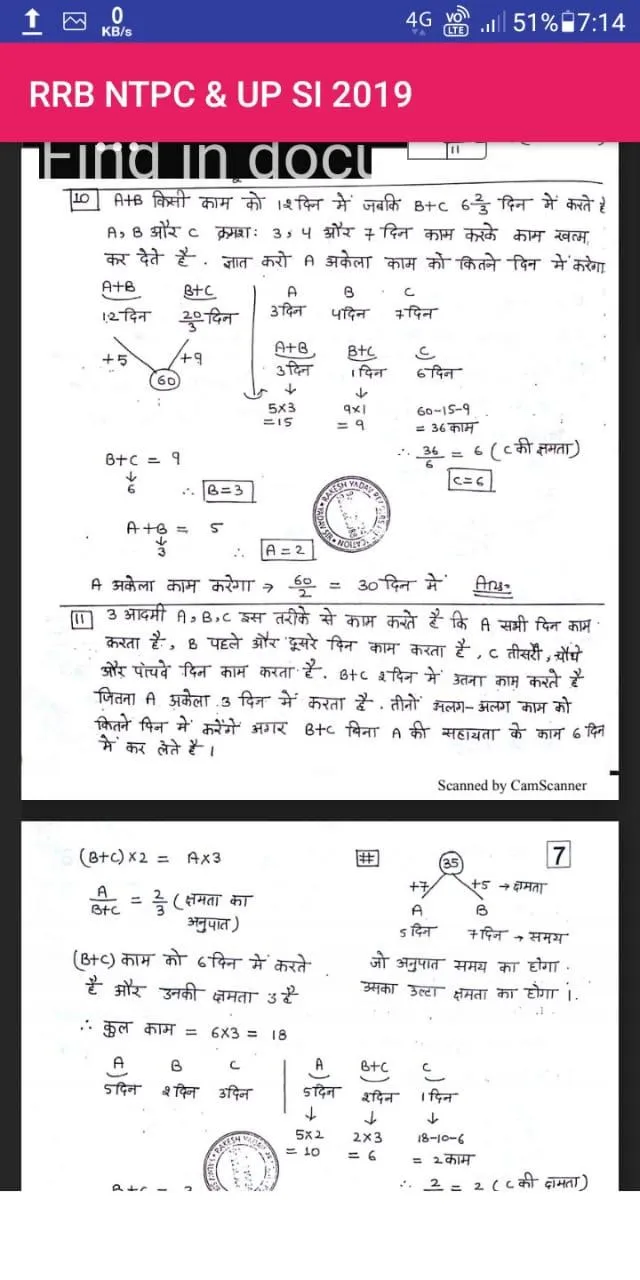 0
KB/s
4G VO LTE 51% 7:14
RRB NTPC & UP SI 2019
Find in docu
11
10 A+B किसी काम को 12 दिन में जबकि B+C 6 2/3 दिन में करते है
A, B और C क्रमशः 3, 4 और 7 दिन काम करके काम खत्म
कर देते है . ज्ञात करो A अकेला काम को कितने दिन में करेगा
A+B B+C A B C
12 दिन 20/3 दिन 3 दिन 4 दिन 7 दिन
+5 +9
60
A+B B+C C
3 दिन 1 दिन 6 दिन
5x3 9x1 60-15-9
=15 = 9 = 36 काम
∴ 36/6 = 6 (C की क्षमता)
C=6
B+C = 9
6 ∴ B=3
A+B = 5
3 ∴ A=2
A अकेला काम करेगा → 60/2 = 30 दिन में Ans.
11 3 आदमी A, B, C इस तरीके से काम करते है कि A सभी दिन काम
करता है, B पहले और दूसरे दिन काम करता है, C तीसरे, चौथे
और पांचवे दिन काम करता है. B+C 2 दिन में उतना काम करते है
जितना A अकेला 3 दिन में करता है. तीनों अलग-अलग काम को
कितने दिन में करेंगे अगर B+C बिना A की सहायता के काम 6 दिन
में कर लेते है।
Scanned by CamScanner
7
(B+C) x 2 = A x 3
A/B+C = 2/3 (क्षमता का
अनुपात)
(B+C) काम को 6 दिन में करते
है और उनकी क्षमता 3 है
∴ कुल काम = 6x3 = 18
# 35
+7 +5 → क्षमता
A B
5 दिन 7 दिन → समय
जो अनुपात समय का होगा .
उसका उल्टा क्षमता का होगा।
A B C A B+C C
5 दिन 2 दिन 3 दिन 5 दिन 2 दिन 1 दिन
5x2 2x3 18-10-6
= 10 = 6 = 2 काम
B+C = 3
∴ 2 = 2 (C की क्षमता)